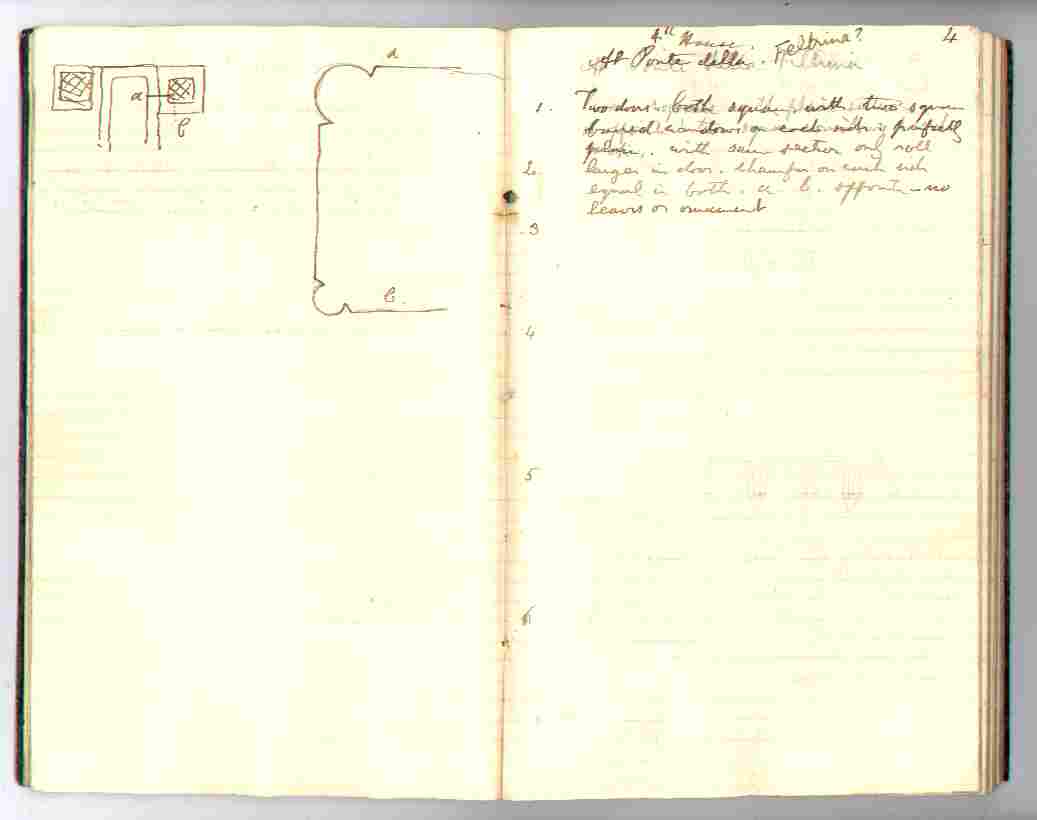 a
a
b
b.
4th House.
At Ponte della. Feltrina?
Feltrina
4
1. Two doors both square with two square
barred windows on each side perfectly
plain. with same section only roll
2. larger in door. Chamfer on each side
equal in both. a b. opposite - no
leaves or ornament
3
4
5
6